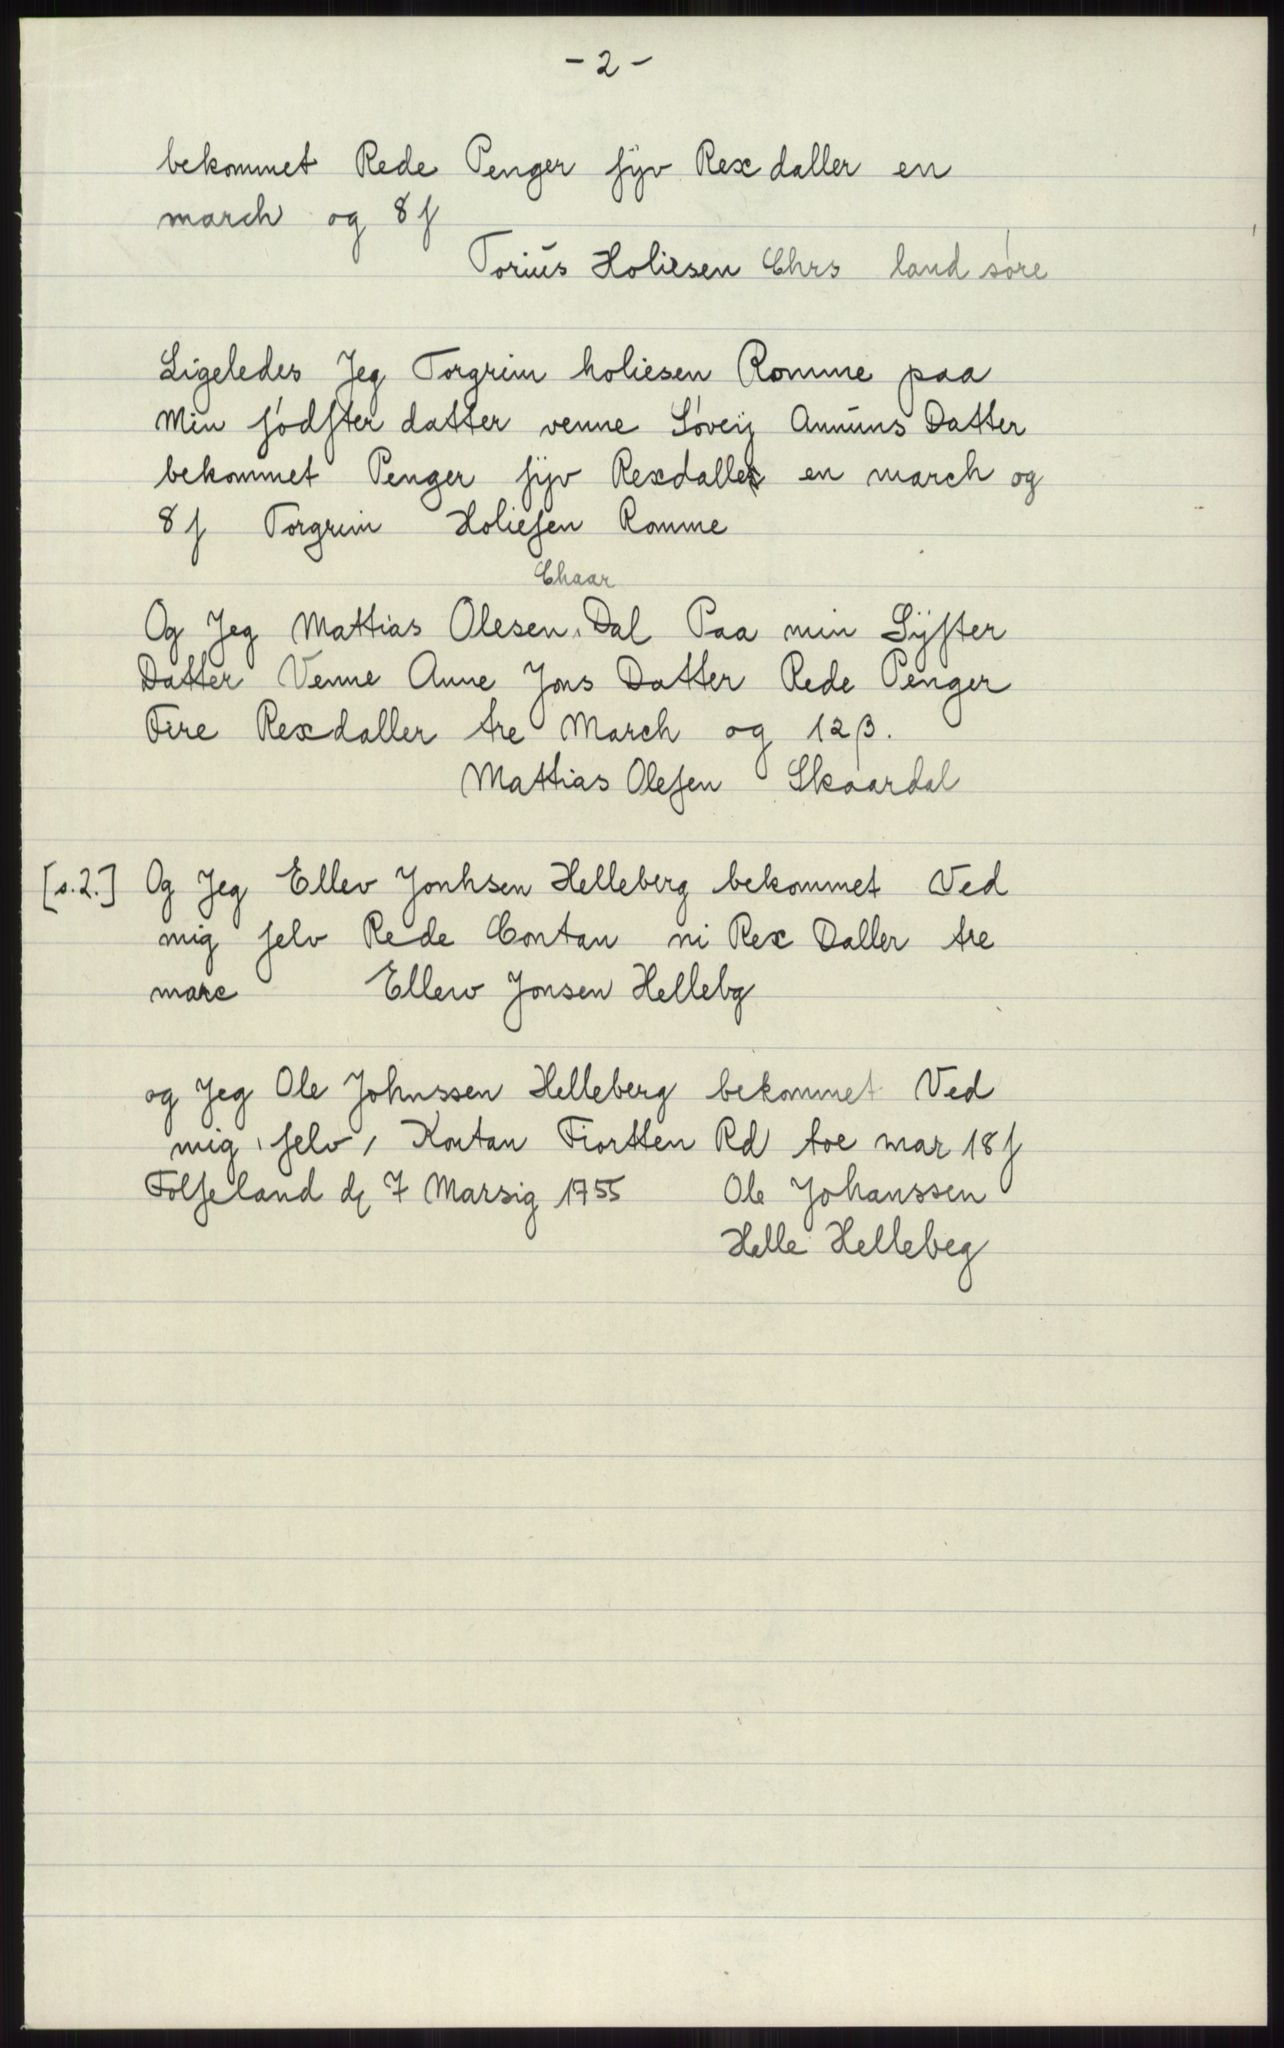 - 2 -
bekommet Rede Penger ſyv Rex daller en
march og 8 ſ
Toriŭs Holiesen Chrs land søre
Ligeledes Jeg Torgrim holiesen Romme paa
Min ſødſter datter venne Søveij Anŭns Datter
bekommet Penger ſyv Rexdaller en march og
8 ſ Torgrim Holieſen Romme
Chaar
Og Jeg Mattias Olesen Dal Paa min Sÿſter
Datter Venne Anne Jons Datter Rede Penger
Fire Rexdaller tre March og 12 β.
Mattias Oleſen Skaardal
[s.2.] Og Jeg Ellev Jonhsen Helleberg bekommet Ved
mig ſelv Rede Contan ni Rex Daller tre
marc Ellew Jonsen Hellebg
og Jeg Ole Johnssen Helleberg bekommet Ved
mig, ſelv, Kontan Fiortten Rd toe mar 18 ſ
Folſeland d 7 Marsig 1755 Ole Johanssen
Helle Hellebeg